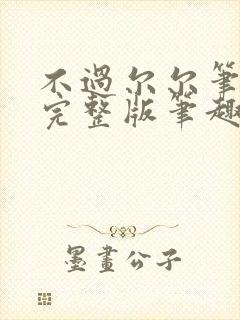 不過尔尔筆
完整版筆趣
墨畫公子